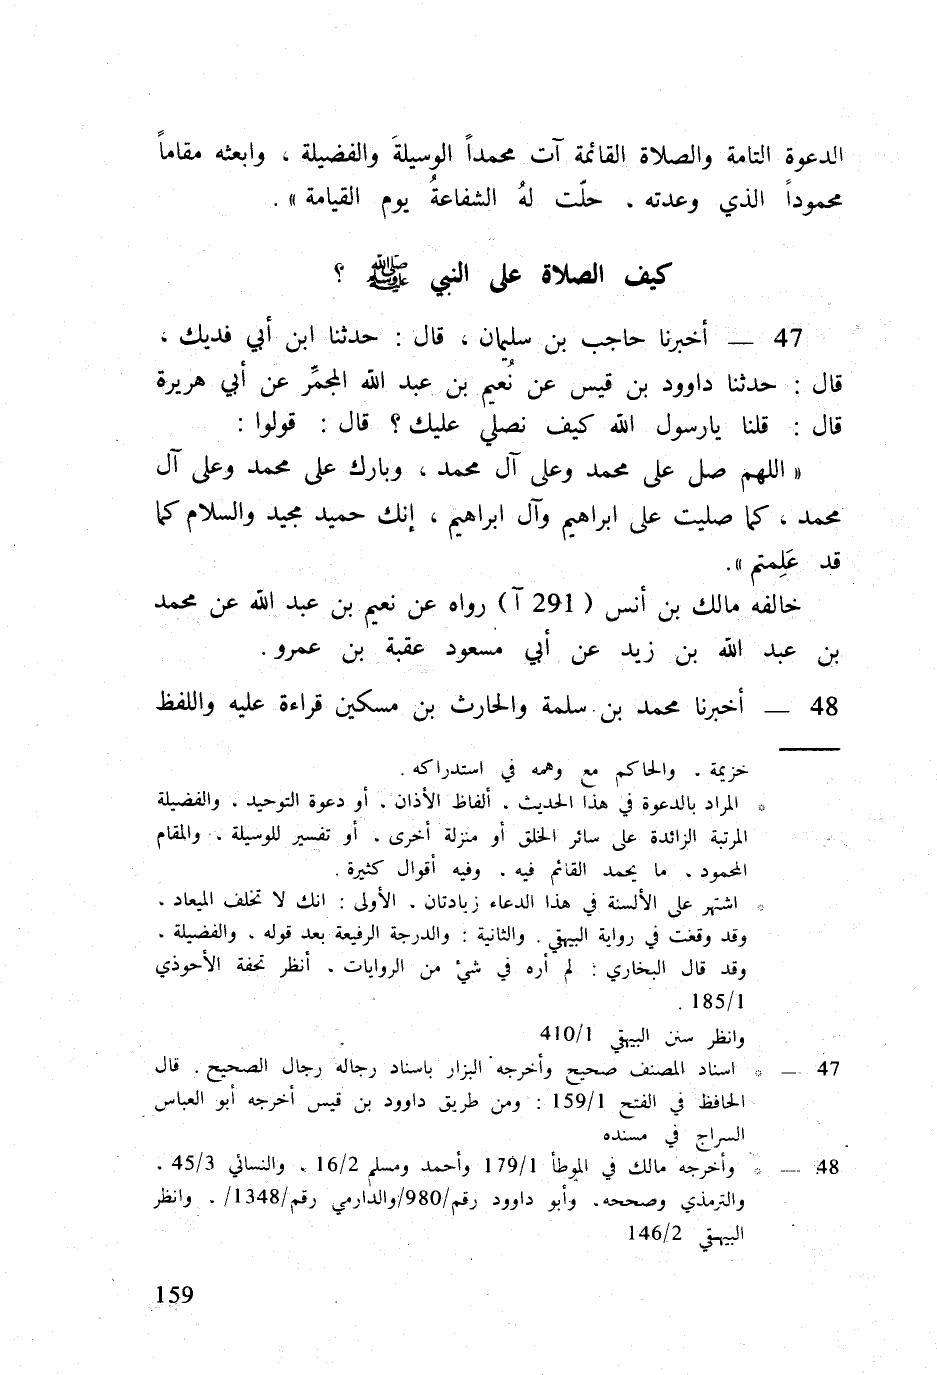 الدعوة التامة والصلاة القائمة آت محمداً الوسيلةَ والفضيلة ، وابعثه مقاماً
محموداً الذي وعدته . حلّت لهُ الشفاعةُ يوم القيامة » .
كيف الصلاة على النبي ﷺ ؟
47 — أخبرنا حاجب بن سليمان ، قال : حدثنا ابن أبي فديك ،
قال : حدثنا داوود بن قيس عن نُعيم بن عبد الله المجمِّر عن أبي هريرة
قال : قلنا يارسول الله كيف نصلي عليك ؟ قال : قولوا :
« اللهم صل على محمد وعلى آل محمد ، وبارك على محمد وعلى آل
محمد ، كما صليت على ابراهيم وآل ابراهيم ، إنك حميد مجيد والسلام كما
قد عَلِمتم » .
خالفه مالك بن أنس ( 291 آ ) رواه عن نعيم بن عبد الله عن محمد
بن عبد الله بن زيد عن أبي مسعود عقبة بن عمرو .
48 — أخبرنا محمد بن سلمة والحارث بن مسكين قراءة عليه واللفظ
خزيمة . والحاكم مع وهمه في استدراكه .
* المراد بالدعوة في هذا الحديث . ألفاظ الأذان . أو دعوة التوحيد . والفضيلة
المرتبة الزائدة على سائر الخلق أو منزلة أخرى . أو تفسير للوسيلة . والمقام
المحمود . ما يحمد القائم فيه . وفيه أقوال كثيرة .
* اشتهر على الألسنة في هذا الدعاء زيادتان . الأولى : انك لا تخلف الميعاد .
وقد وقعت في رواية البيهقي . والثانية : والدرجة الرفيعة بعد قوله . والفضيلة .
وقد قال البخاري : لم أره في شئ من الروايات . أنظر تحفة الأحوذي
185/1 .
وانظر سنن البيهقي 410/1
47 — * اسناد المصنف صحيح وأخرجه البزار باسناد رجاله رجال الصحيح . قال
الحافظ في الفتح 159/1 : ومن طريق داوود بن قيس أخرجه أبو العباس
السراج في مسنده
48 — * وأخرجه مالك في الموطأ 179/1 وأحمد ومسلم 16/2 . والنسائي 45/3 .
والترمذي وصححه. وأبو داوود رقم/980/والدارمي رقم/1348/ . وانظر
البيهقي 146/2
159